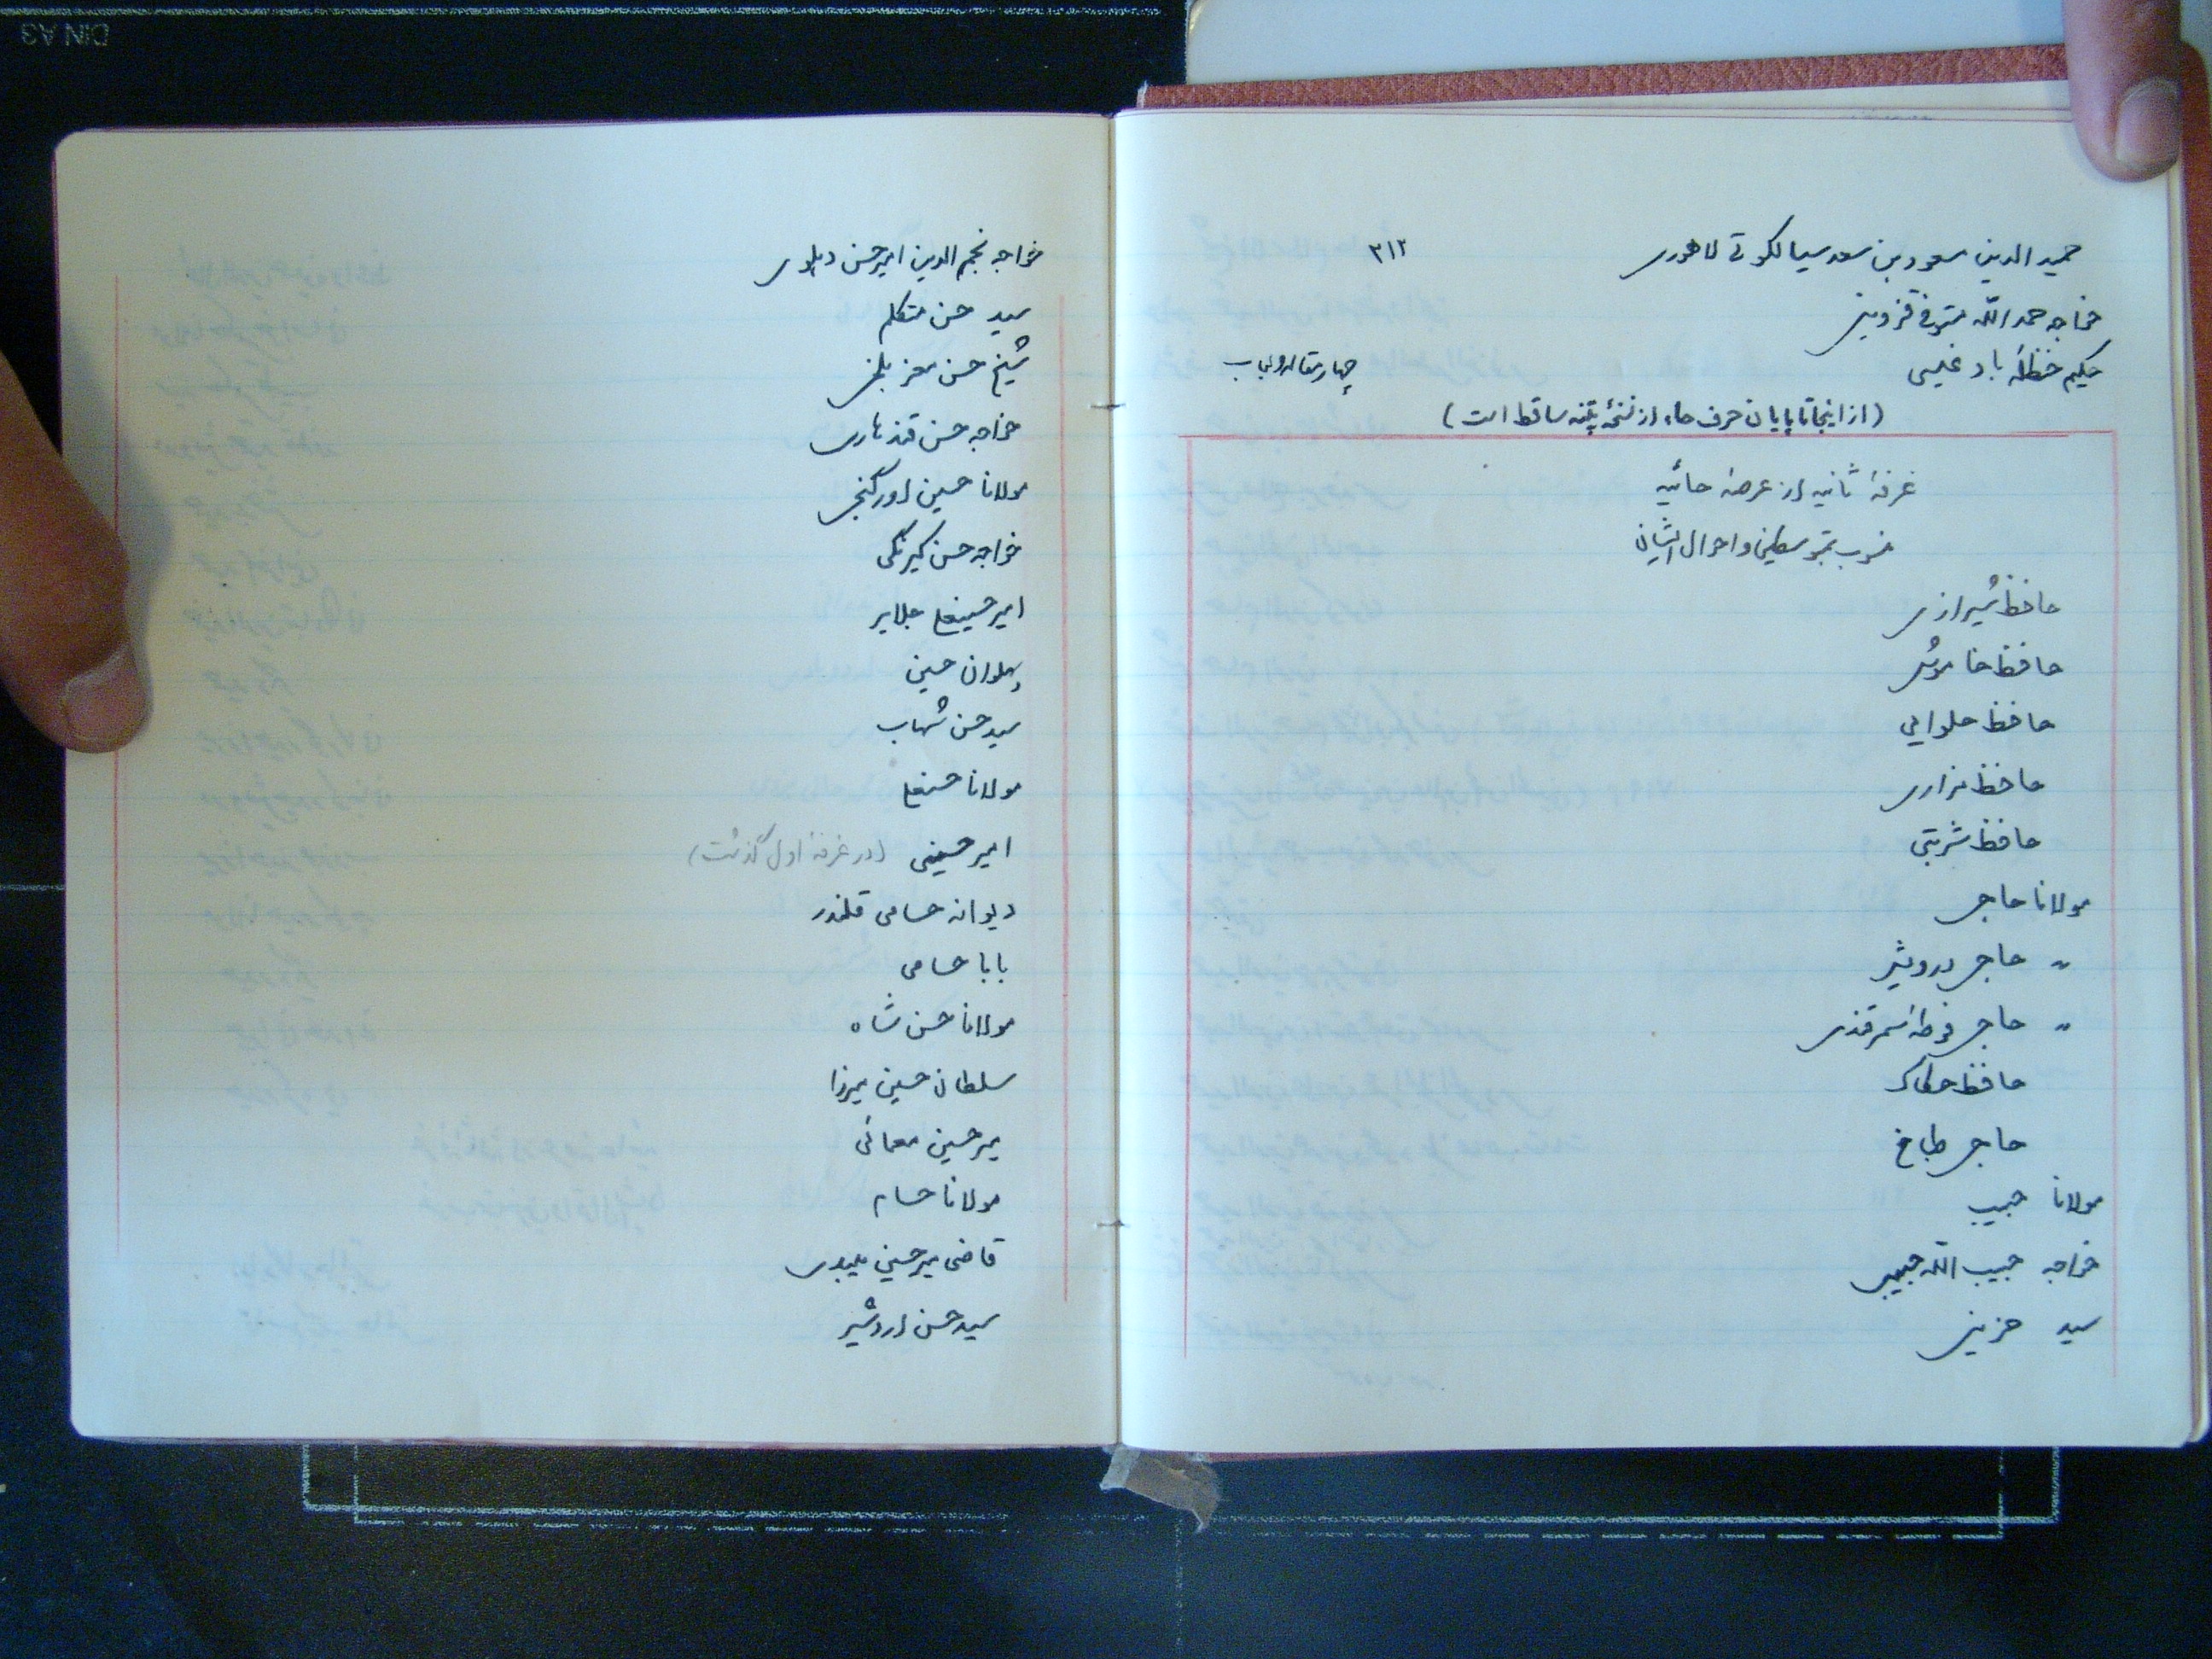 حمید الدین مسعود بن سعد سیالکوتی لاهوری ۳۱۲
خواجه حمد الله مستوفی قزوینی
حکیم حنظلهٔ بادغیسی چهار مقاله و لباب
(از اینجا تا پایان حرف حاء از نسخهٔ پتنه ساقط است)
غرفهٔ ثانیه از عرصهٔ حائیه
منسوب بمتوسطین و احوال ایشان
حافظ شیرازی
حافظ خاموش
حافظ حلوایی
حافظ مزاری
حافظ شربتی
مولانا حاجی
〃 حاجی درویش
〃 حاجی فوطهٔ سمرقندی
حافظ حکاک
حاجی طباخ
مولانا حبیب
خواجه حبیب الله حبیبی
سید حزینی
خواجه نجم الدین امیر حسن دهلوی
سید حسن متکلم
شیخ حسن معز بلخی
خواجه حسن قندهاری
مولانا حسین اورگنجی
خواجه حسن کیرنگی
امیر حسینعلی جلایر
پهلوان حسین
سید حسن شهاب
مولانا حسنعلی
امیر حسینی (در غرفهٔ اول گذشت)
دیوانه حسامی قلندر
بابا حسامی
مولانا حسن شاه
سلطان حسین میرزا
میر حسین معمائی
مولانا حسام
قاضی میر حسین میبدی
سید حسن اردشیر
DIN A3